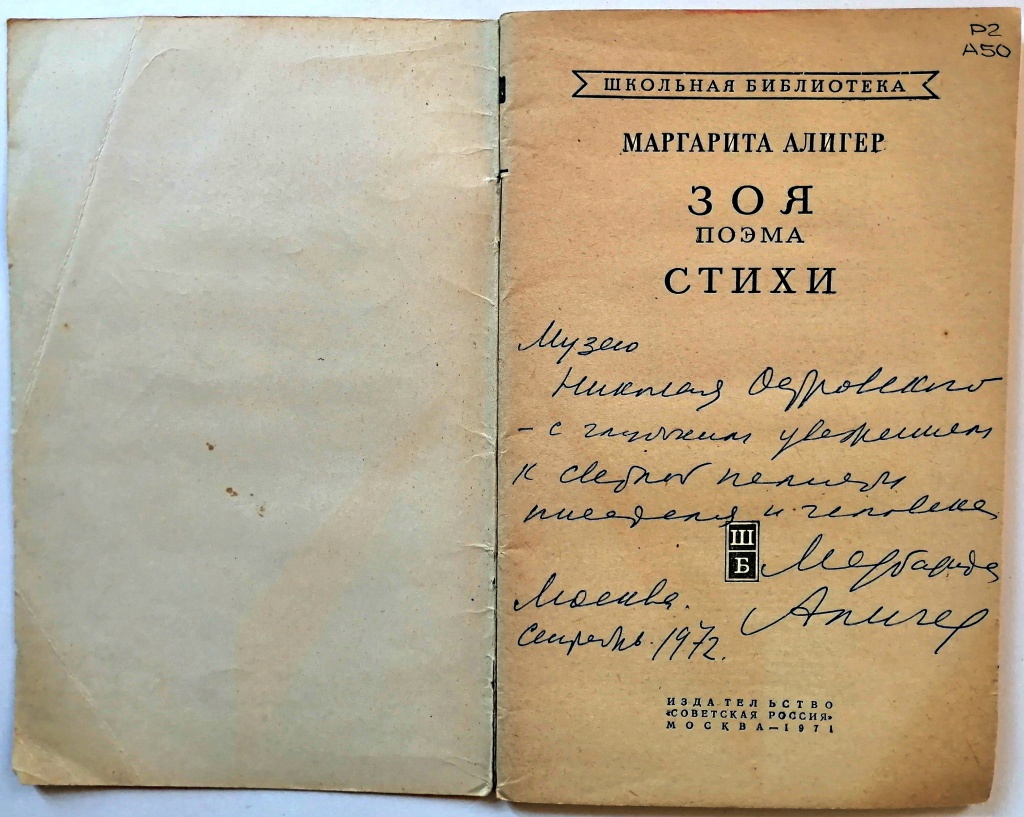 Р2
А50
ШКОЛЬНАЯ БИБЛИОТЕКА
МАРГАРИТА АЛИГЕР
ЗОЯ
ПОЭМА
СТИХИ
Музею
Николая Островского
– с глубоким уважением
к светлой памяти
писателя и человека
Ш
Б
Маргарита
Алигер
Москва.
Сентябрь. 1972.
ИЗДАТЕЛЬСТВО
«СОВЕТСКАЯ РОССИЯ»
МОСКВА—1971